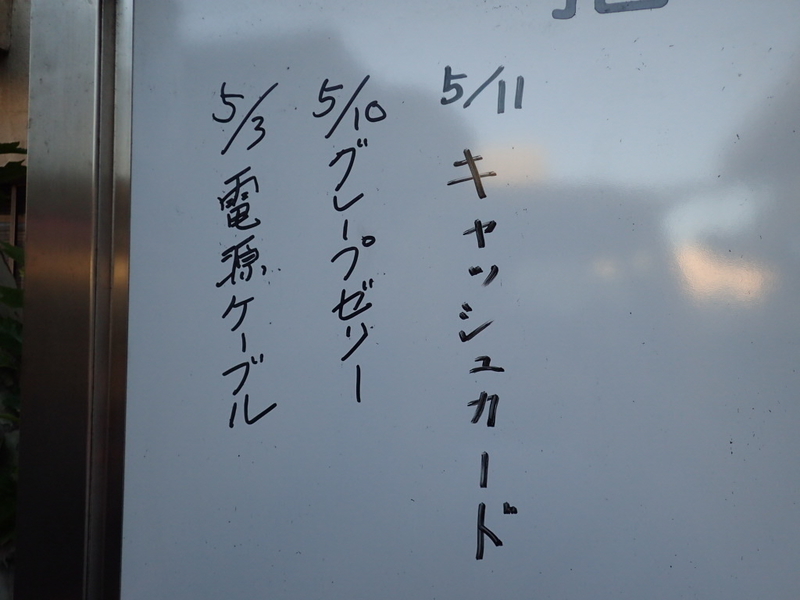 5/11 キャッシュカード
5/10 グレープゼリー
5/3 電源ケーブル